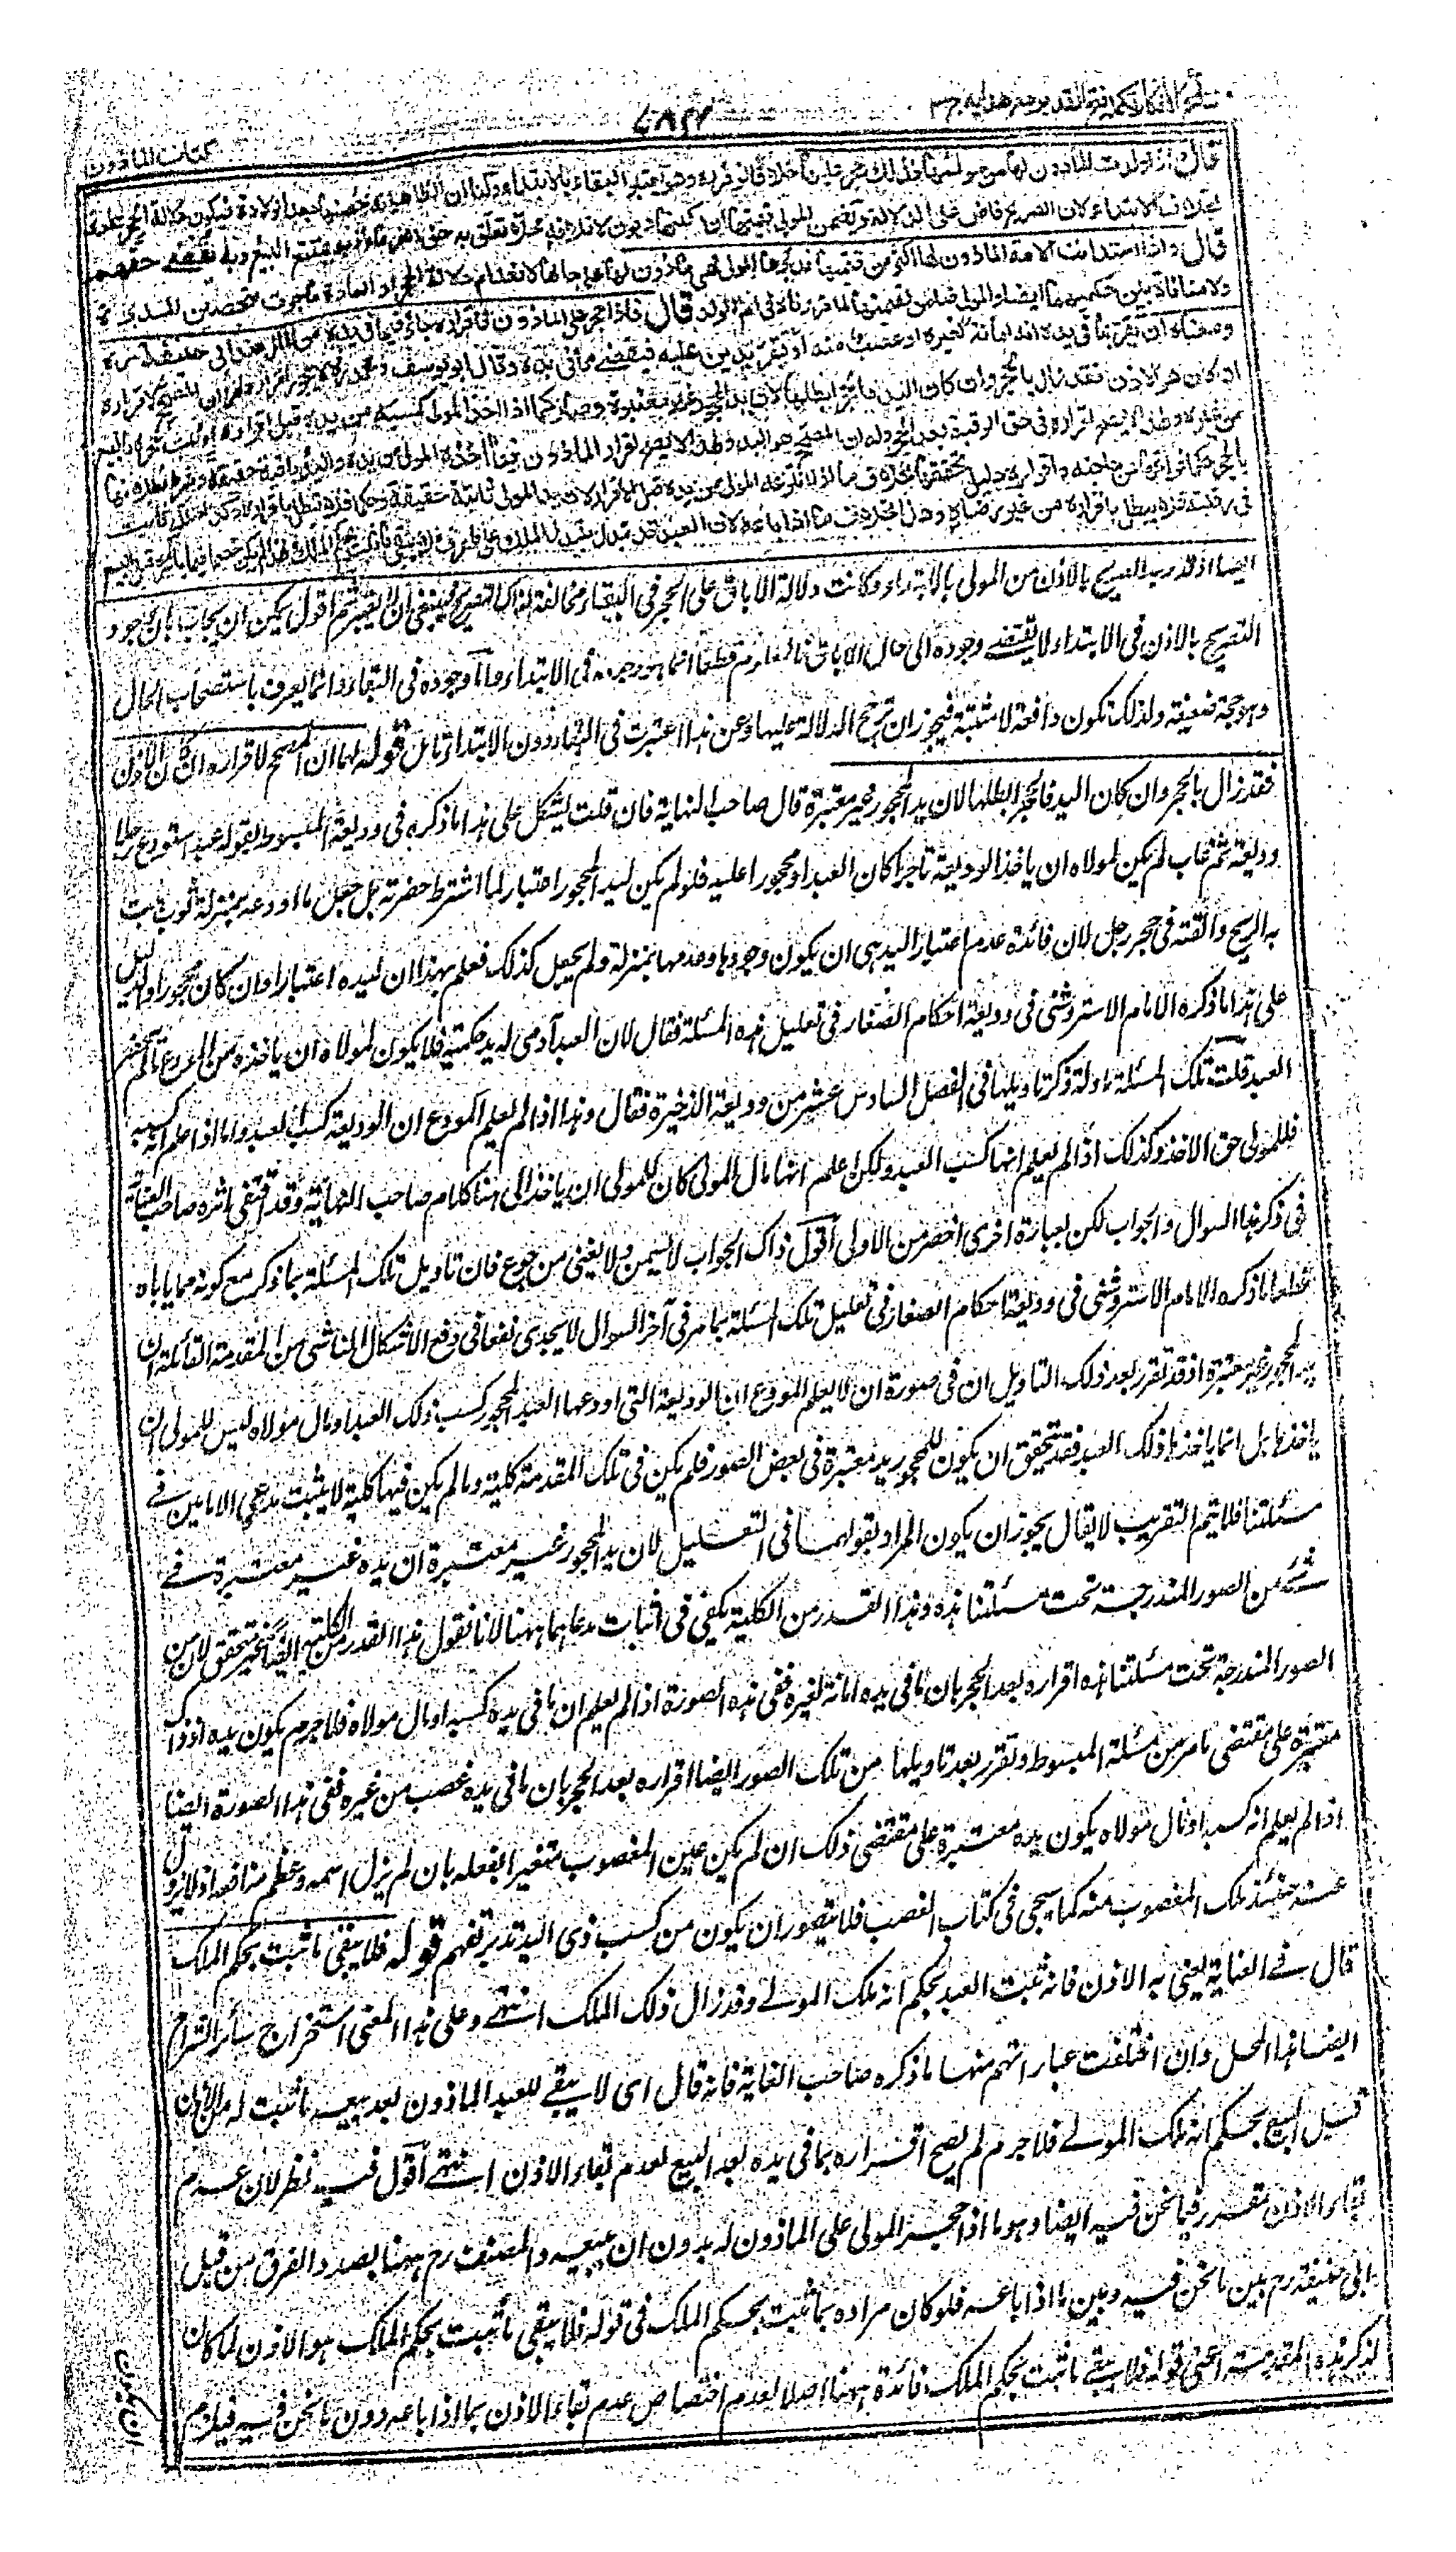 نتائج الافکار تکملة فتح القدیر مع هدایه ج ۳
کتاب الماذون
قال واذا ولدت الماذون لها من مولاها فذلك حجر علیها خلافا لزفر وهو یعتبر البقاء بالابتداء ولنا ان الظاهر انه یحصنها بعد الولادة فیکون دلالة الحجر عادة
بخلاف الابتداء لان الصریح قاض علی الدلالة ویضمن المولی قیمتها ان رکبتها دیون لاتلافه محلا تعلق به حق الغرماء اذ به یمتنع البیع وبه یقضی حقهم
قال واذا استدانت الامة الماذون لها اکثر من قیمتها فدبرها المولی فهی ماذون لها علی حالها لانعدام دلالة الحجر اذ العادة ما جرت بتحصین المدبرة
ولا منافاة بین حکمیهما ایضا والمولی ضامن لقیمتها لما قررناه فی ام الولد قال فاذا حجر علی الماذون فاقراره جائز فیما فی یده من المال عند ابی حنیفة
ومعناه ان یقر بما فی یده انه امانة لغیره او غصب منه او یقر بدین علیه فیقضی مما فی یده وقال ابو یوسف ومحمد لا یجوز اقراره لهما ان المصحح لاقراره
ان کان هو الاذن فقد زال بالحجر وان کان الید فالحجر ابطلها لان ید المحجور غیر معتبرة وصار کما اذا اخذ المولی کسبه من یده قبل اقراره او ثبت حجره بالبیع
من غیره ولهذا لا یصح اقراره فی حق الرقبة بعد الحجر وله ان المصحح هو الید ولهذا لا یصح اقرار الماذون فیما اخذه المولی من یده والید باقیة حقیقة وشرط بطلانها
بالحجر حکما فراغها عن حاجته واقراره دلیل تحققها بخلاف ما اذا انتزعه المولی من یده قبل الاقرار لان ید المولی ثابتة حقیقة وحکما فلا تبطل باقراره وکذا ملکه ثابت
فی رقبته فلا یبطل باقراره من غیر رضاه وهذا بخلاف ما اذا باعه لان العبد قد تبدل بتبدل الملك علی ما عرف فلا یبقی ما ثبت بحکم الملك
ایضا اذ قد ربه الصریح بالاذن من المولی بالابتداء وکانت دلالة الاباق علی الحجر فی البقاء مخالفة لذاک التصریح فینبغی ان لا یعتبر ثم اقول یمکن ان یجاب بان وجود
التصریح بالاذن فی الابتداء لا یقتضی وجوده الی حال الاباق فالمعلوم قطعا انما هو وجوده فی الابتداء واما وجوده فی البقاء فانما یعرف باستصحاب الحال
وهو حجة ضعیفة ولذلک تکون دافعة لا مثبتة فیجوز ان ترجح الدلالة علیها وعن هذا اعتبرت فی البقاء دون الابتداء تامل قوله لهما ان المصحح لاقراره ان کان الاذن
فقد زال بالحجر وان کان الید فالحجر ابطلها لان ید المحجور غیر معتبرة قال صاحب النهایة فان قلت یشکل علی هذا ما ذکره فی ودیعة المبسوط بقوله عبد استودع رجلا
ودیعة ثم غاب لم یکن لمولاه ان یاخذ الودیعة تاجرا کان العبد او محجورا علیه فلو لم یکن لید المحجور اعتبار لما اشترط حضرته بل جعل ما اودعه بمنزلة ثوب هبت
به الریح والقته فی حجر رجل لان فائدة عدم اعتبار الید هی ان یکون وجودها وعدمها بمنزلة ولم یجعل کذلک فعلم بهذا ان لیده اعتبارا وان کان محجورا والدلیل
علی هذا ما ذکره الامام الاستروشنی فی ودیعة احکام الصغار فی تعلیل هذه المسئلة فقال لان العبد آدمی له ید حکمیة فلا یکون لمولاه ان یاخذه من المودع ما لم یحضر
العبد قلت تلک المسئلة ماولة ذکر تاویلها فی الفصل السادس عشر من ودیعة الذخیرة فقال وهذا اذا لم یعلم المودع ان الودیعة کسب العبد واما اذا علم انه کسبه
فللمولی حق الاخذ وکذلک اذا لم یعلم انها کسب العبد ولکن علم انها مال المولی کان للمولی ان یاخذ الی هنا کلام صاحب النهایة وقد اقتفی اثره صاحب العنایة
فی ذکر هذا السوال والجواب لکن بعبارة اخری اخصر من الاولی اقول ذاک الجواب لا یسمن ولا یغنی من جوع فان تاویل تلک المسئلة بما ذکر مع کونه مما یاباه
قطعا ما ذکره الامام الاستروشنی فی ودیعة احکام الصغار فی تعلیل تلک المسئلة بما مر فی آخر السوال لا یجدی نفعا فی دفع الاشکال الناشی من المقدمة القائلة ان
ید المحجور غیر معتبرة اذ قد تقرر بعد ذلک التاویل ان فی صورة ان لا یعلم المودع ان الودیعة التی اودعها العبد المحجور کسب ذلک العبد او مال مولاه لیس للمولی ان
یاخذها بل انما یاخذها ذلک العبد فقد تحقق ان یکون للمحجور ید معتبرة فی بعض الصور فلم یکن فی تلک المقدمة کلیة وما لم یکن فیها کلیة لا یثبت مدعی الامامین فی
مسئلتنا فلا یتم التقریب لا یقال یجوز ان یکون المراد بقولهما فی التعلیل لان ید المحجور غیر معتبرة ان یده غیر معتبرة فی
شئ من الصور المندرجة تحت مسئلتنا هذه وهذا القدر من الکلیة یکفی فی اثبات مدعاهما ههنا لانا نقول هذا القدر من الکلیة ایضا غیر متحقق لان من
الصور المندرجة تحت مسئلتنا هذه اقراره بعد الحجر بان ما فی یده امانة لغیره ففی هذه الصورة اذا لم یعلم ان ما فی یده کسبه او مال مولاه فلا جرم یکون یده اذ ذاک
معتبرة علی مقتضی ما مر من مسئلة المبسوط وتقرر بعد تاویلها من تلک الصور ایضا اقراره بعد الحجر بان ما فی یده غصب من غیره ففی هذه الصورة ایضا
اذا لم یعلم انه کسبه او مال مولاه یکون یده معتبرة علی مقتضی ذلک ان لم یکن عین المغصوب متغیرا بفعله بان لم یزل اسمه وعظم منافعه اذ لا یزول
عنه حینئذ ملک المغصوب منه کما سیجی فی کتاب الغصب فلا یتصور ان یکون من کسب ذی الید تدبر تفهم قوله فلا یبقی ما ثبت بحکم الملک
قال فی العنایة یعنی به الاذن فانه ثبت العبد بحکم انه ملک المولی وقد زال ذلک الملک انتهی وعلی هذا المعنی استخراج سائر الشراح
ایضا هذا المحل وان اختلفت عباراتهم منها ما ذکره صاحب الغایة فانه قال ای لا یبقی للعبد الماذون بعد بیعه ما ثبت له من الاذن
قبل البیع بحکم انه ملک المولی فلا جرم لم یصح اقراره بما فی یده بعد البیع لعدم بقاء الاذن انتهی اقول فیه نظر لان عدم
بقاء الاذن متقرر فیما نحن فیه ایضا وهو ما اذا حجر المولی علی الماذون له بدون ان یبیعه والمصنف رح ههنا بصدد الفرق من قبل
ابی حنیفة رح بین ما نحن فیه وبین ما اذا باعه فلو کان مراده بما ثبت بحکم الملک فی قوله فلا یبقی ما ثبت بحکم الملک هو الاذن لما کان
لذکر هذه المقدمة اعنی قوله فلا یبقی ما ثبت بحکم الملک فائدة ههنا اصلا لعدم اختصاص عدم بقاء الاذن بما اذا باعه دون ما نحن فیه فیلزم
ان یکون